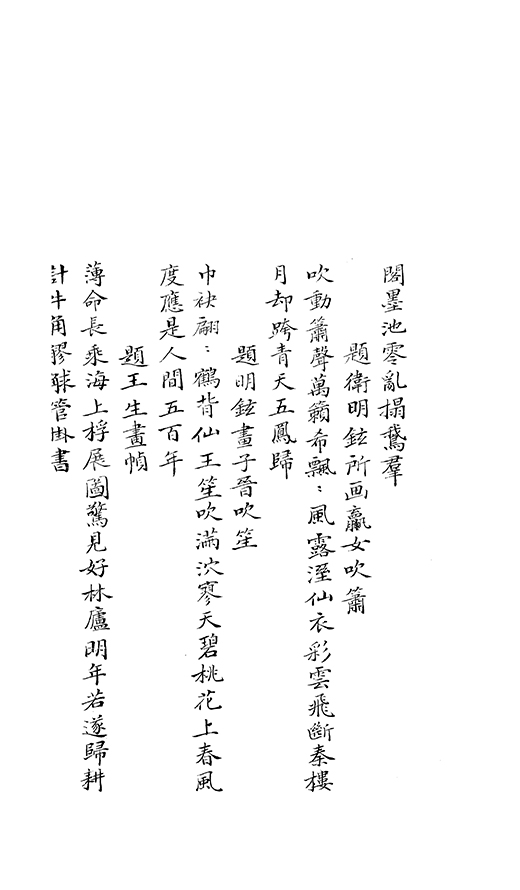 閣墨池零亂搨鵞羣
題衛明鉉所画嬴女吹簫
吹動簫聲萬籟希飄〻風露溼仙衣彩雲飛斷秦樓
月却跨青天五鳳歸
題明鉉畫子晉吹笙
巾袂翩〻鶴背仙玉笙吹滿泬寥天碧桃花上春風
度應是人間五百年
題王生畫幀
薄命長乘海上桴展圖驚見好林廬明年若遂歸耕
計牛角髎馝管掛書